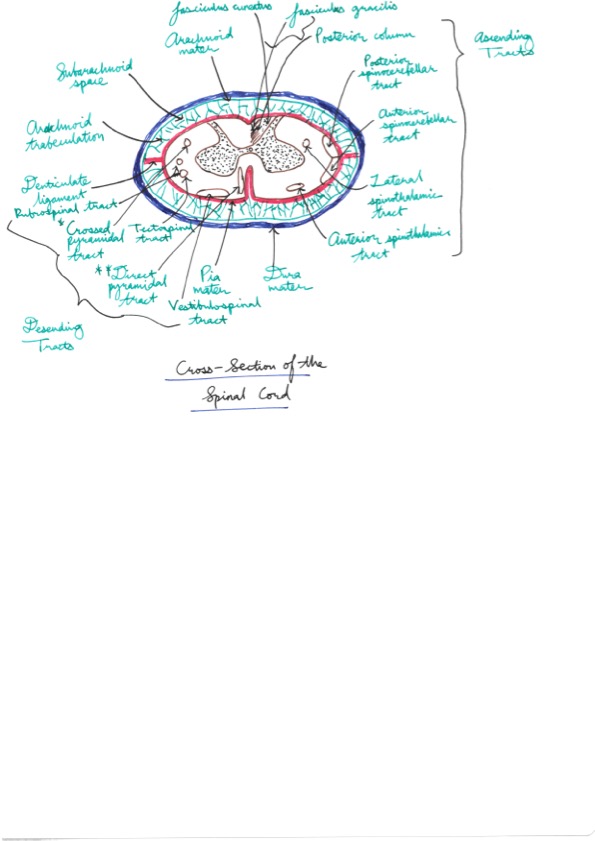 fasciculus cuneatus
fasciculus gracilis
Posterior column
Arachnoid
mater
Ascending
Tracts
Posterior
spinocerebellar
tract
Subarachnoid
space
Anterior
spinocerebellar
tract
Arachnoid
trabeculation
Denticulate
ligament
Lateral
spinothalamic
tract
Rubrospinal tract
*Crossed
pyramidal
tract
Tectospinal
tract
Anterior spinothalamic
tract
**Direct
pyramidal
tract
Pia
mater
Dura
mater
Vestibulospinal
tract
Desending
Tracts
Cross-Section of the
Spinal Cord